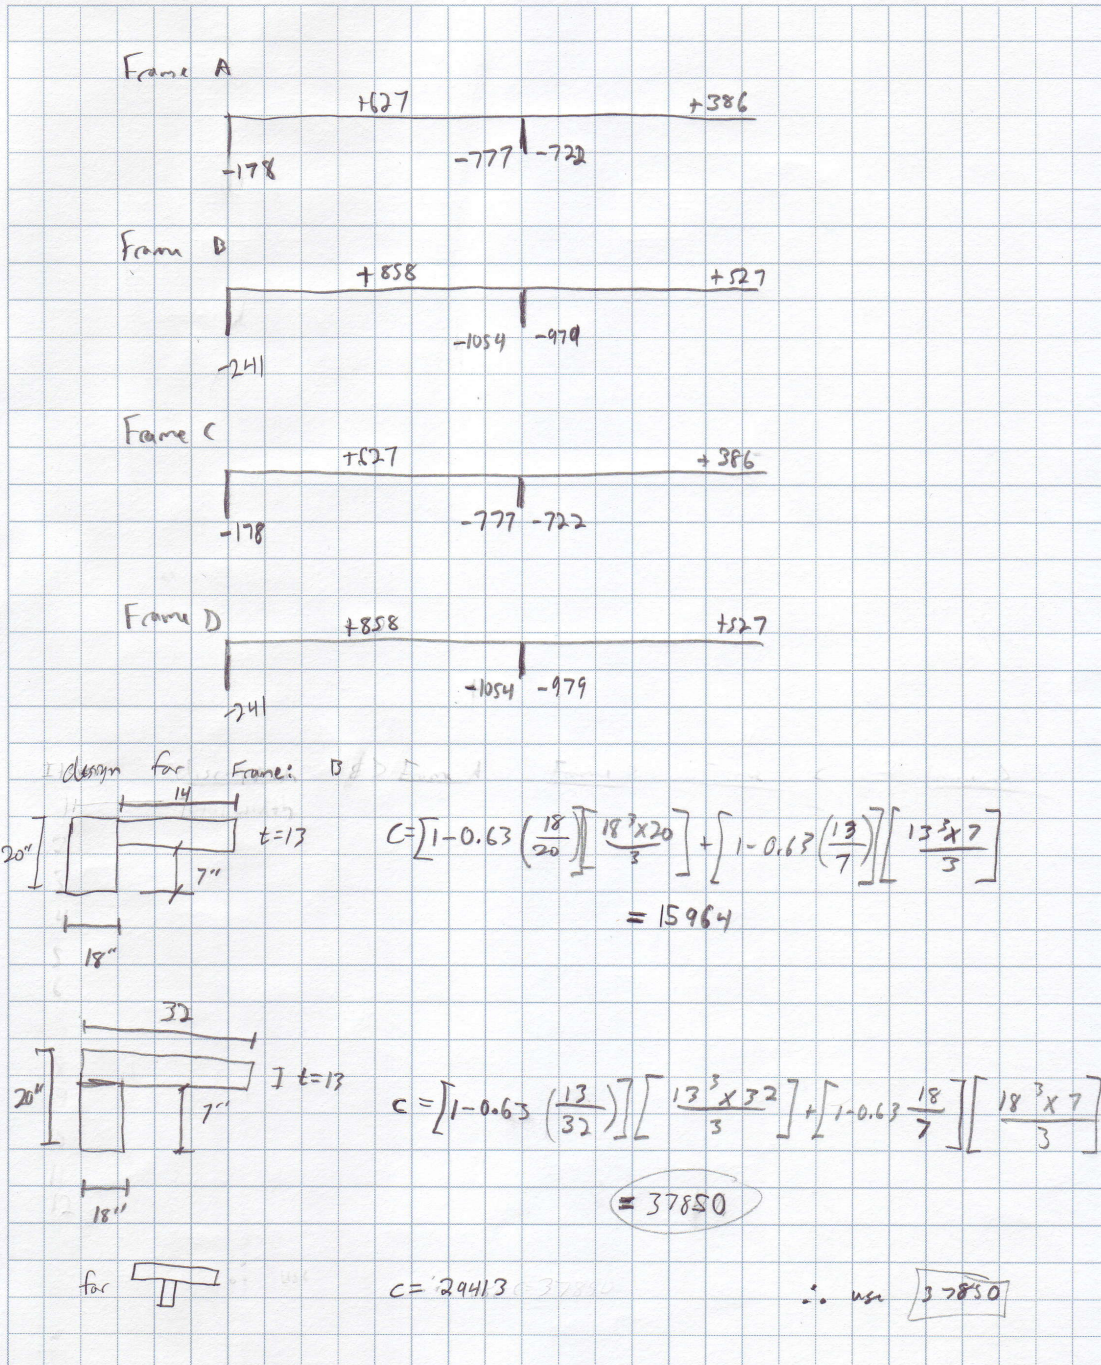 Frame A
+627 +386
-178 -777 -722
Frame B
+858 +527
-241 -1054 -979
Frame C
+627 +386
-178 -777 -722
Frame D
+858 +527
-241 -1054 -979
design for Frame: B
14
20" t=13 C=[1-0.63(18/20)][18³×20/3]+[1-0.63(13/7)][13³×7/3]
7"
= 15964
18"
32
20" t=13 C=[1-0.63(13/32)][13³×32/3]+[1-0.63 18/7][18³×7/3]
7"
= 37850
18"
for C=29413 ∴ use 37850